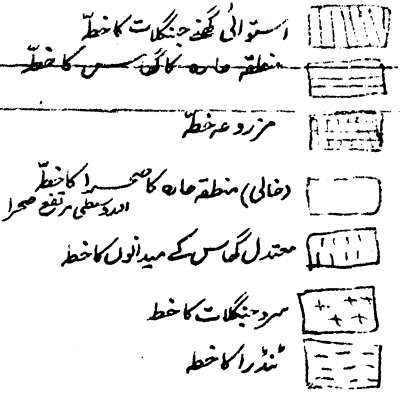 استوائی گھنے جنگلات کا خطہّ
منطقہ حارہ کا گھاس کا خطہّ
مزروعہ خطہّ
(خالی) منطقہ حارہ کا صحرا کا خطہّ
اور وسطی مرتفع صحرا
معتدل گھاس کے میدانوں کا خطہ
سرد جنگلات کا خطہ
ٹنڈرا کا خطہ